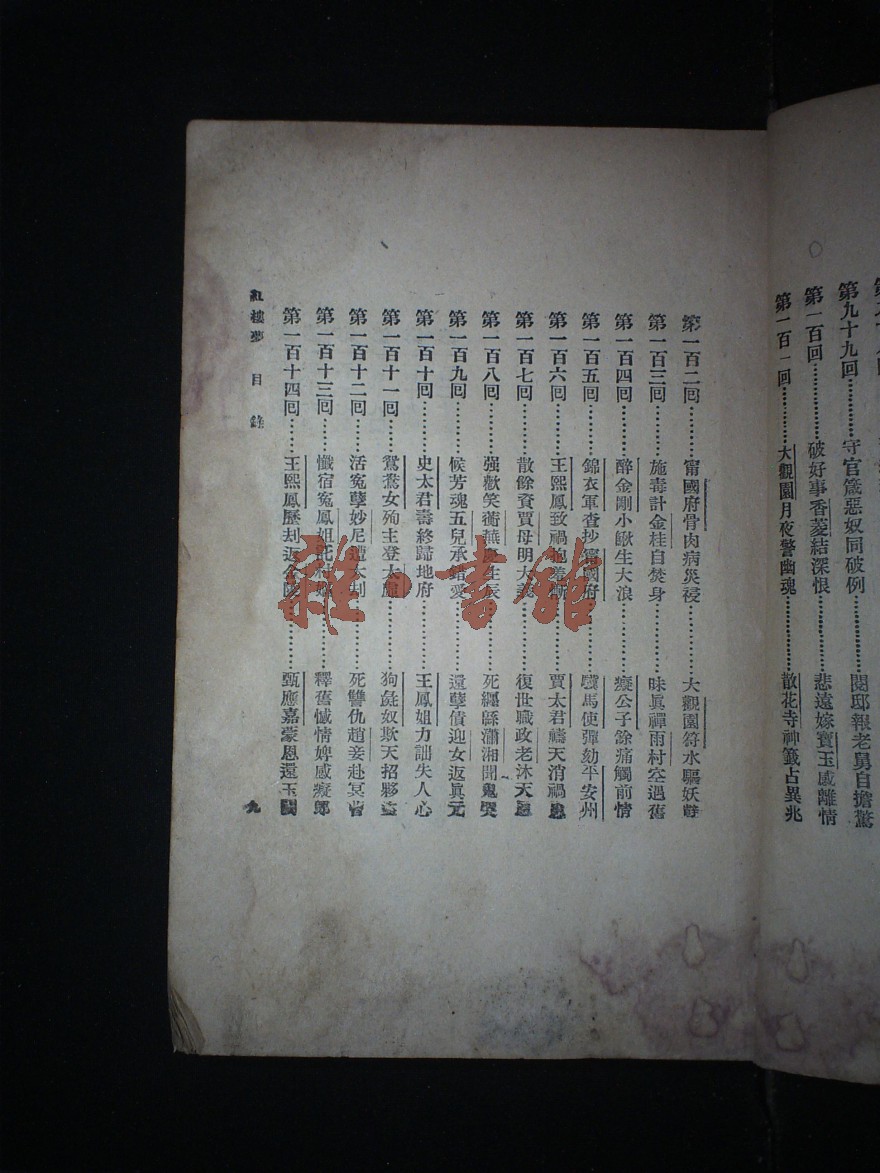 第九十九回………守官箴惡奴同破例………閱邸報老舅自擔驚
第一百回…………破好事香菱結深恨………悲遠嫁寶玉感離情
第一百一回………大觀園月夜警幽魂………散花寺神籤占異兆
第一百二回………甯國府骨肉病災祲………大觀園符水驅妖孽
第一百三回………施毒計金桂自焚身………昧眞禪雨村空遇舊
第一百四回………醉金剛小鰍生大浪………癡公子餘痛觸前情
第一百五回………錦衣軍查抄甯國府………驄馬使彈劾平安州
第一百六回………王熙鳳致禍抱羞慚………賈太君禱天消禍患
第一百七回………散餘資賈母明大義………復世職政老沐天恩
第一百八回………强歡笑蘅蕪慶生辰………死纏緜瀟湘聞鬼哭
第一百九回………候芳魂五兒承錯愛………還孽債迎女返眞元
第一百十回………史太君壽終歸地府………王鳳姐力詘失人心
第一百十一回……鴛鴦女殉主登太虛………狗彘奴欺天招夥盜
第一百十二回……活寃孽妙尼遭大刦………死讐仇趙妾赴冥曹
第一百十三回……懺宿寃鳳姐託村嫗………釋舊憾情婢感癡郎
第一百十四回……王熙鳳歷刦返金陵………甄應嘉蒙恩還玉闕
紅樓夢 目錄 九
雜·書館